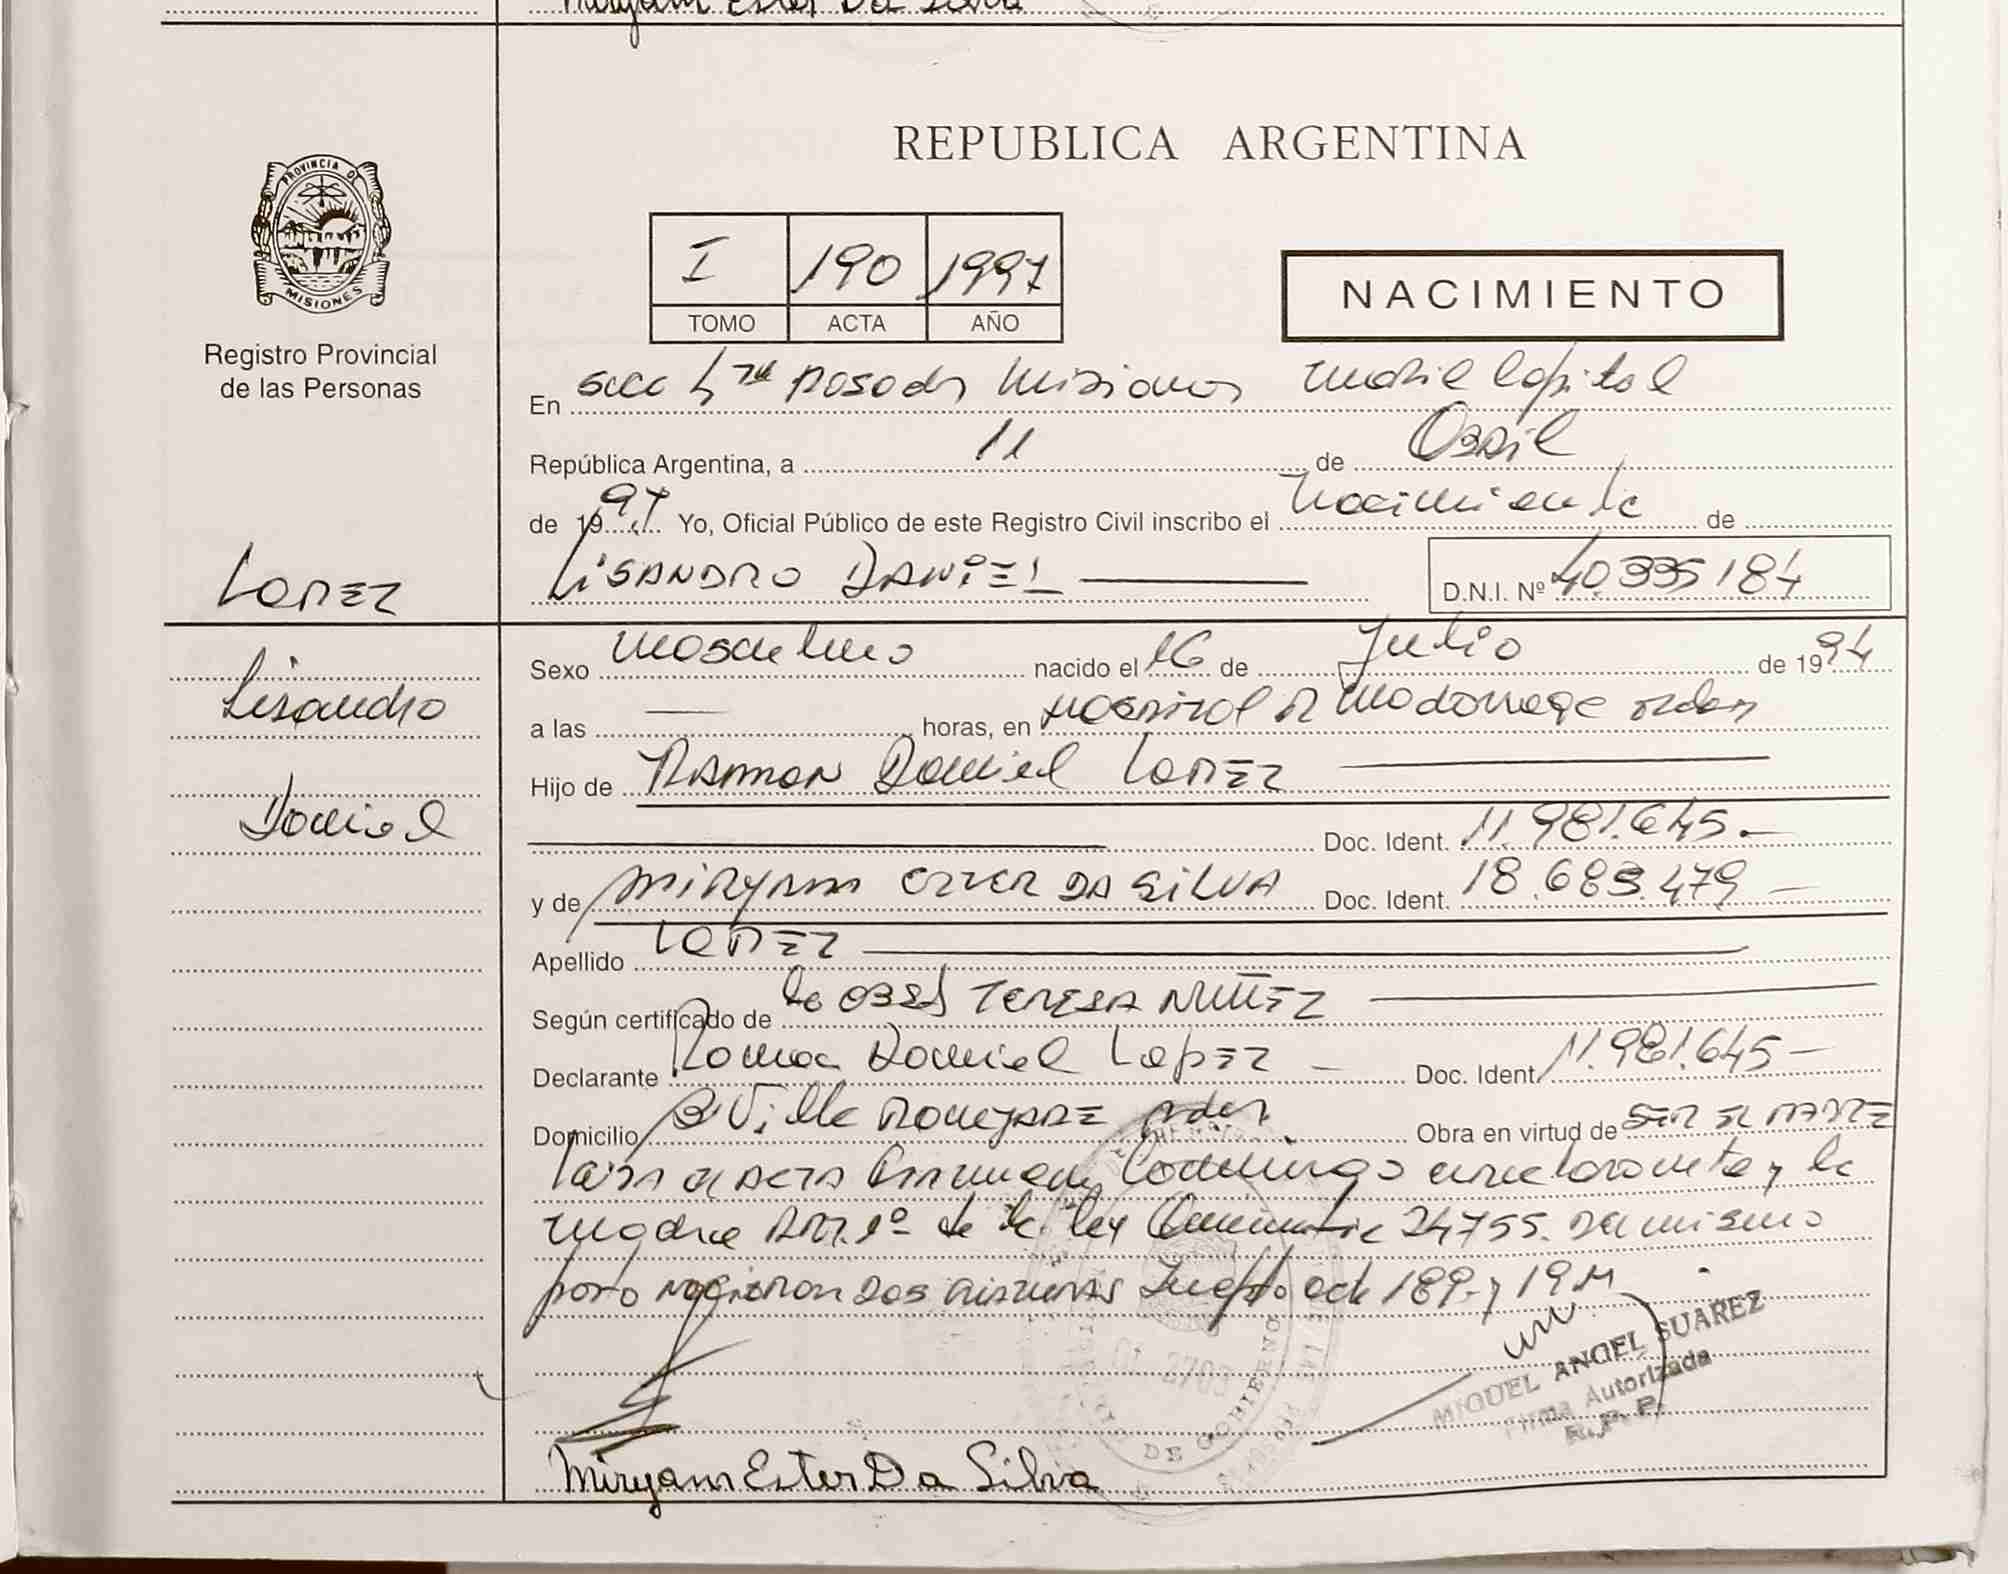 Miryam Ester Da Silva
REPUBLICA ARGENTINA
PROVINCIA DE
MISIONES
Registro Provincial
de las Personas
I 190 1997
TOMO ACTA AÑO
NACIMIENTO
En Secc Posadas Misiones Capital
República Argentina, a 11 de Abril
de 1997 Yo, Oficial Público de este Registro Civil inscribo el nacimiento de
LOPEZ
LISANDRO DANIEL
D.N.I. Nº 40.335184
Lisandro
Daniel
Sexo masculino nacido el 16 de Julio de 1994
a las — horas, en Hospital R Madariaga
Hijo de RAMON Daniel LOPEZ
Doc. Ident. 11.981.645.-
y de MIRYAM ESTER DA SILVA Doc. Ident. 18.683.479 —
Apellido LOPEZ
Según certificado de la OBST TERESA NUÑEZ
Declarante Ramon Daniel Lopez — Doc. Ident. 11.981.645 —
Domicilio Bº Villa Pdas. Obra en virtud de SER EL PADRE
el ACTA y la
madre ART. 1º de la ley 24755.
189 y 191
DE GOBIERNO
MIGUEL ANGEL SUAREZ
Firma Autorizada
R.P.P.
Miryam Ester Da Silva